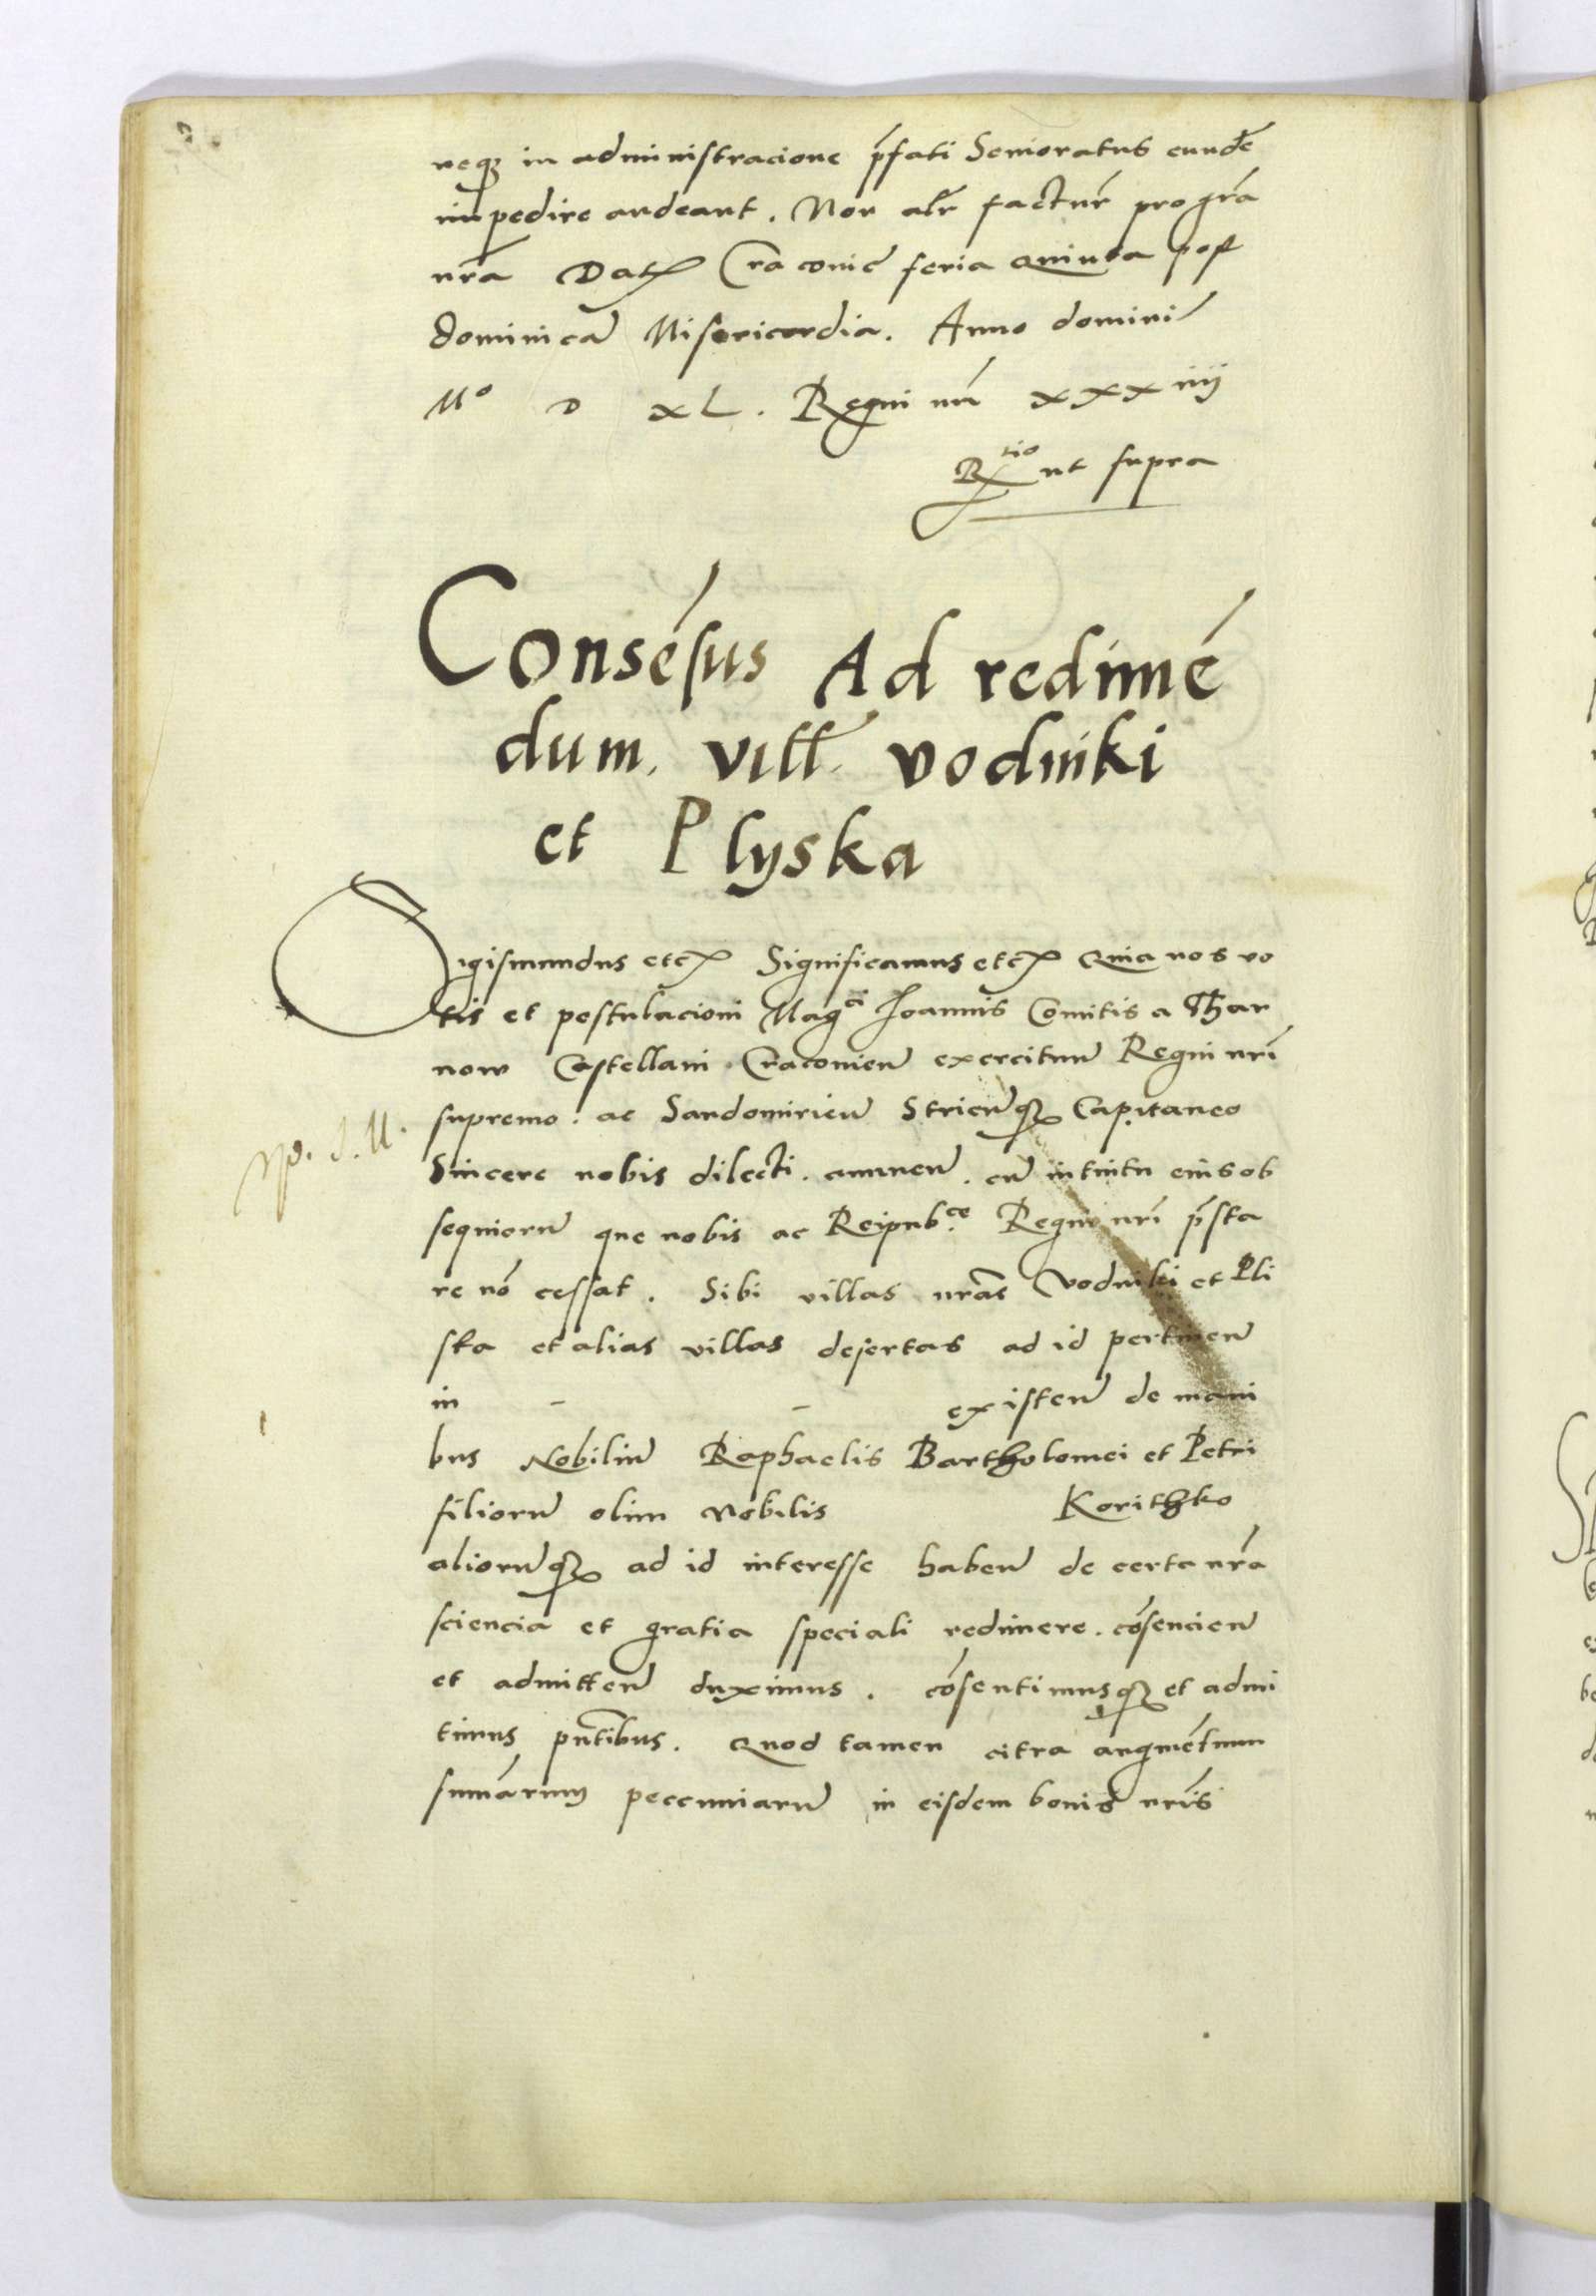 neqȝ in administracione p̄fati Senioratus eundē
impedire audeant. Non alr̄ factur̄ pro gr̄a
nr̄a Datꝭ Cracouie feria quinta post
dominicā Misericordia. Anno domini
Mº D XL. Regni nr̄i XXXiiij
Rtio ut supra
Consēsus Ad redimē
dum. vill̄. vodniki
et Plyska
Sigismundus etcꝭ Significamus etcꝭ Quia nos vo
tis et postulacioni Magci Ioannis Comitis a Thar
now Castellani Cracouień exercituū Regni nr̄i
supremo. ac Sandomirień Strieńqȝ Capitaneo
Sincere nobis dilecti. annueń. eū intuitu eius ob
sequiorū que nobis ac Reipubce Regni nr̄i p̄sta
re nō cessat. Sibi villas nr̄as Vodniki et Pli
ska et alias villas desertas ad id pertineń
in - - existeń de mani
bus Nobiliū Raphaelis Bartholomei et Petri
filiorū olim Nobilis Korithko
aliorūqȝ ad id interesse habeń de certa nr̄a
sciencia et gratia speciali redimere. cōsencień
et admitteń duximus. cōsentimusqȝ et admi
timus pn̄tibus. Quod tamen citra augmētum
summārum peccuniarū in eisdem bonis nr̄is